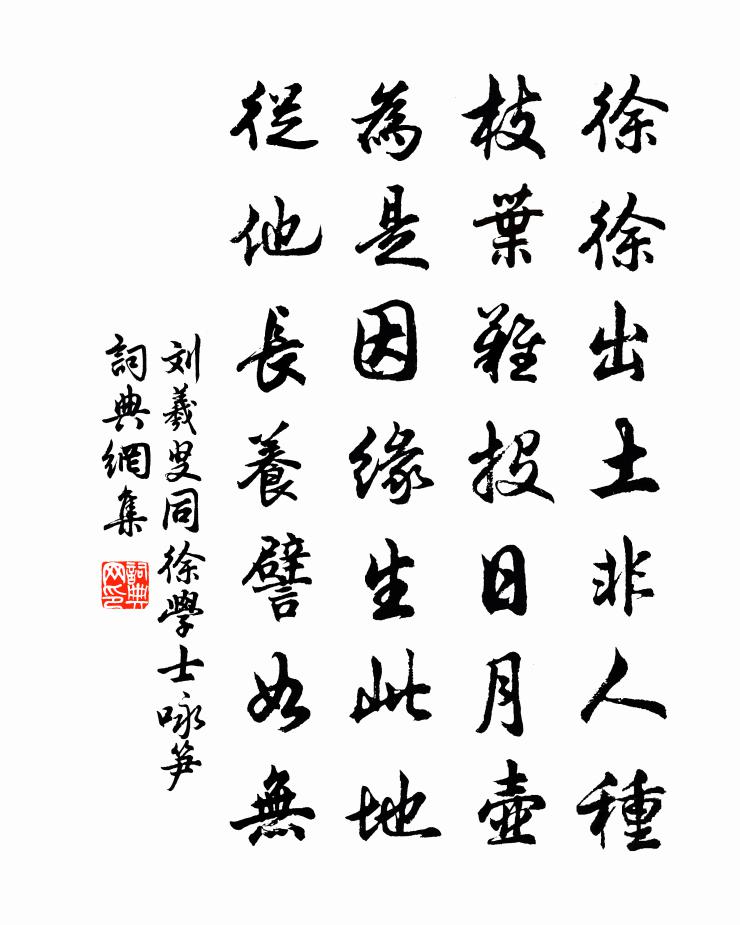 徐徐出土非人種
枝葉難投日月壺
為是因緣生此地
從他長養譬如無
刘羲叟同徐學士咏笋
詞典網集
詞典网印